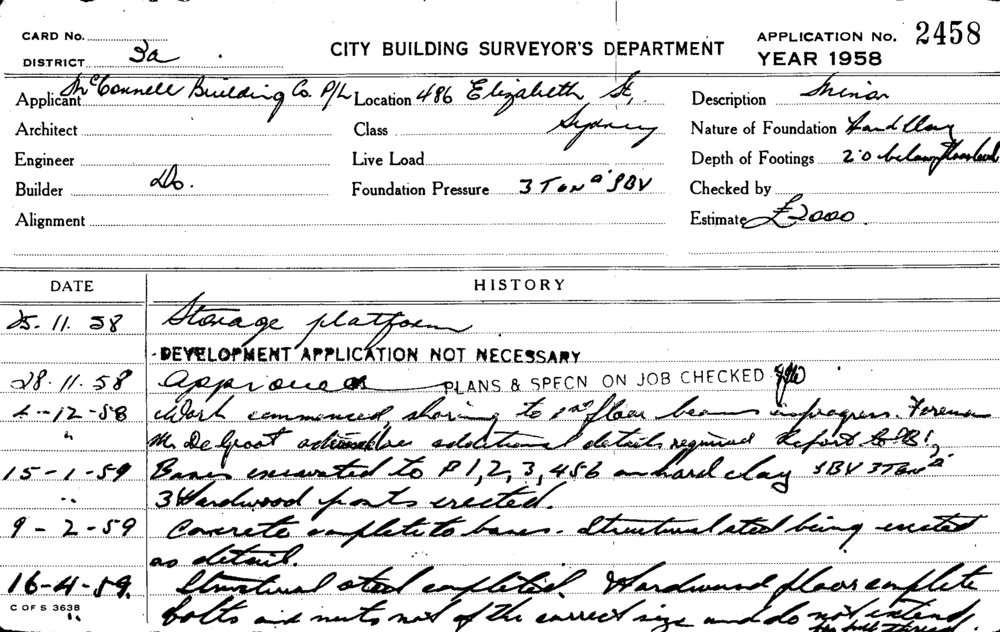 CARD No.
DISTRICT 3a
CITY BUILDING SURVEYOR'S DEPARTMENT
APPLICATION No. 2458
YEAR 1958
Applicant McConnell Building Co P/L Location 486 Elizabeth St, Description Minor
Architect Class Sydney Nature of Foundation Hard Clay
Engineer Live Load Depth of Footings 2'0 below floor level
Builder Do. Foundation Pressure 3 Ton SBV Checked by
Alignment Estimate £2000
DATE HISTORY
25.11.58 Storage platform
DEVELOPMENT APPLICATION NOT NECESSARY
28.11.58 Approved PLANS & SPECN ON JOB CHECKED
4-12-58 Work commenced, shoring to floor beams in progress. Foreman
" Mr De Groot additional details required Report to
15-1-59 Bases excavated to P 1, 2, 3, 4 5 6 on hard clay SBV 3 Ton
" 3 Hardwood posts erected.
9-2-59 Concrete complete to bases. Structural steel being erected
as detail.
16-4-59. Structural steel completed. Hardwood floor complete
C OF S 363B " bolts and nuts not of the correct size and do not extend